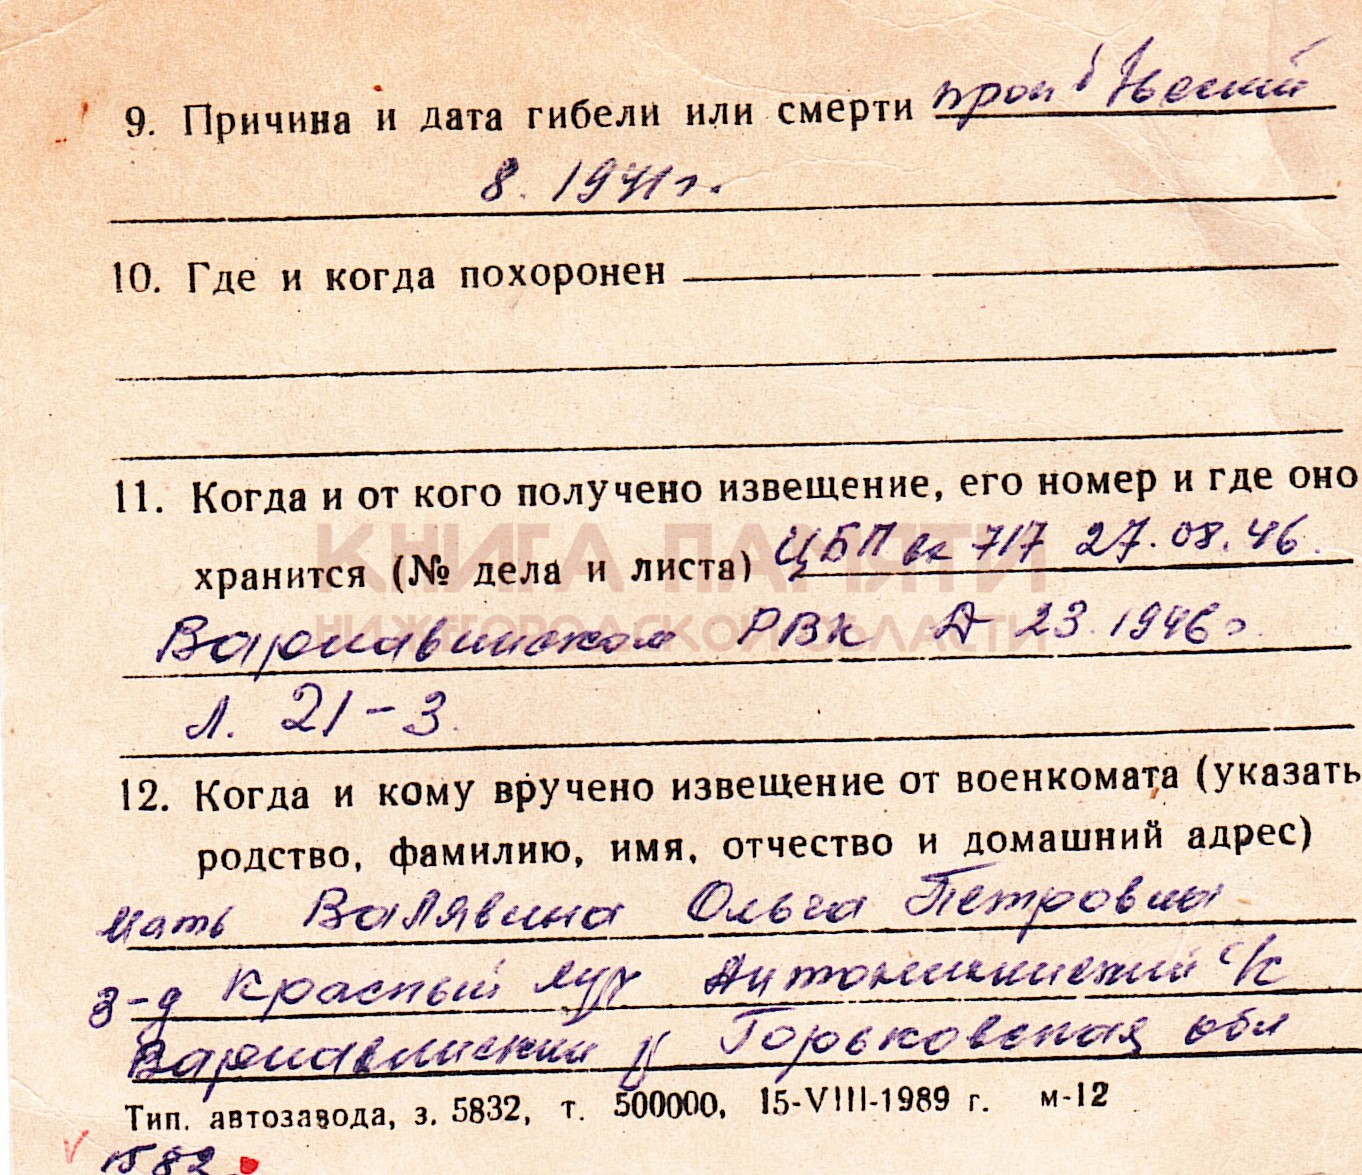 9. Причина и дата гибели или смерти проп б/вести
8. 1941 г.
10. Где и когда похоронен
11. Когда и от кого получено извещение, его номер и где оно
КНИГА ПАМЯТИ
хранится (№ дела и листа) ЦБП вх 717 27.08.46.
НИЖЕГОРОДСКОЙ ОБЛАСТИ
Варнавинском РВК Д 23 1946 г.
Л. 21-3.
12. Когда и кому вручено извещение от военкомата (указать
родство, фамилию, имя, отчество и домашний адрес)
мать Валявина Ольга Петровна
з-д Красный луч Антонихинский с/с
Варнавинский р Горьковская обл
Тип. автозавода, з. 5832, т. 500000, 15-VIII-1989 г. м-12